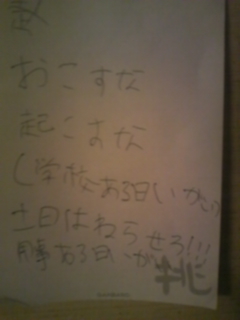 おこすな
起こすな
(学校ある日いがい)
土日はねらせろ!!!
用事ある日いがい